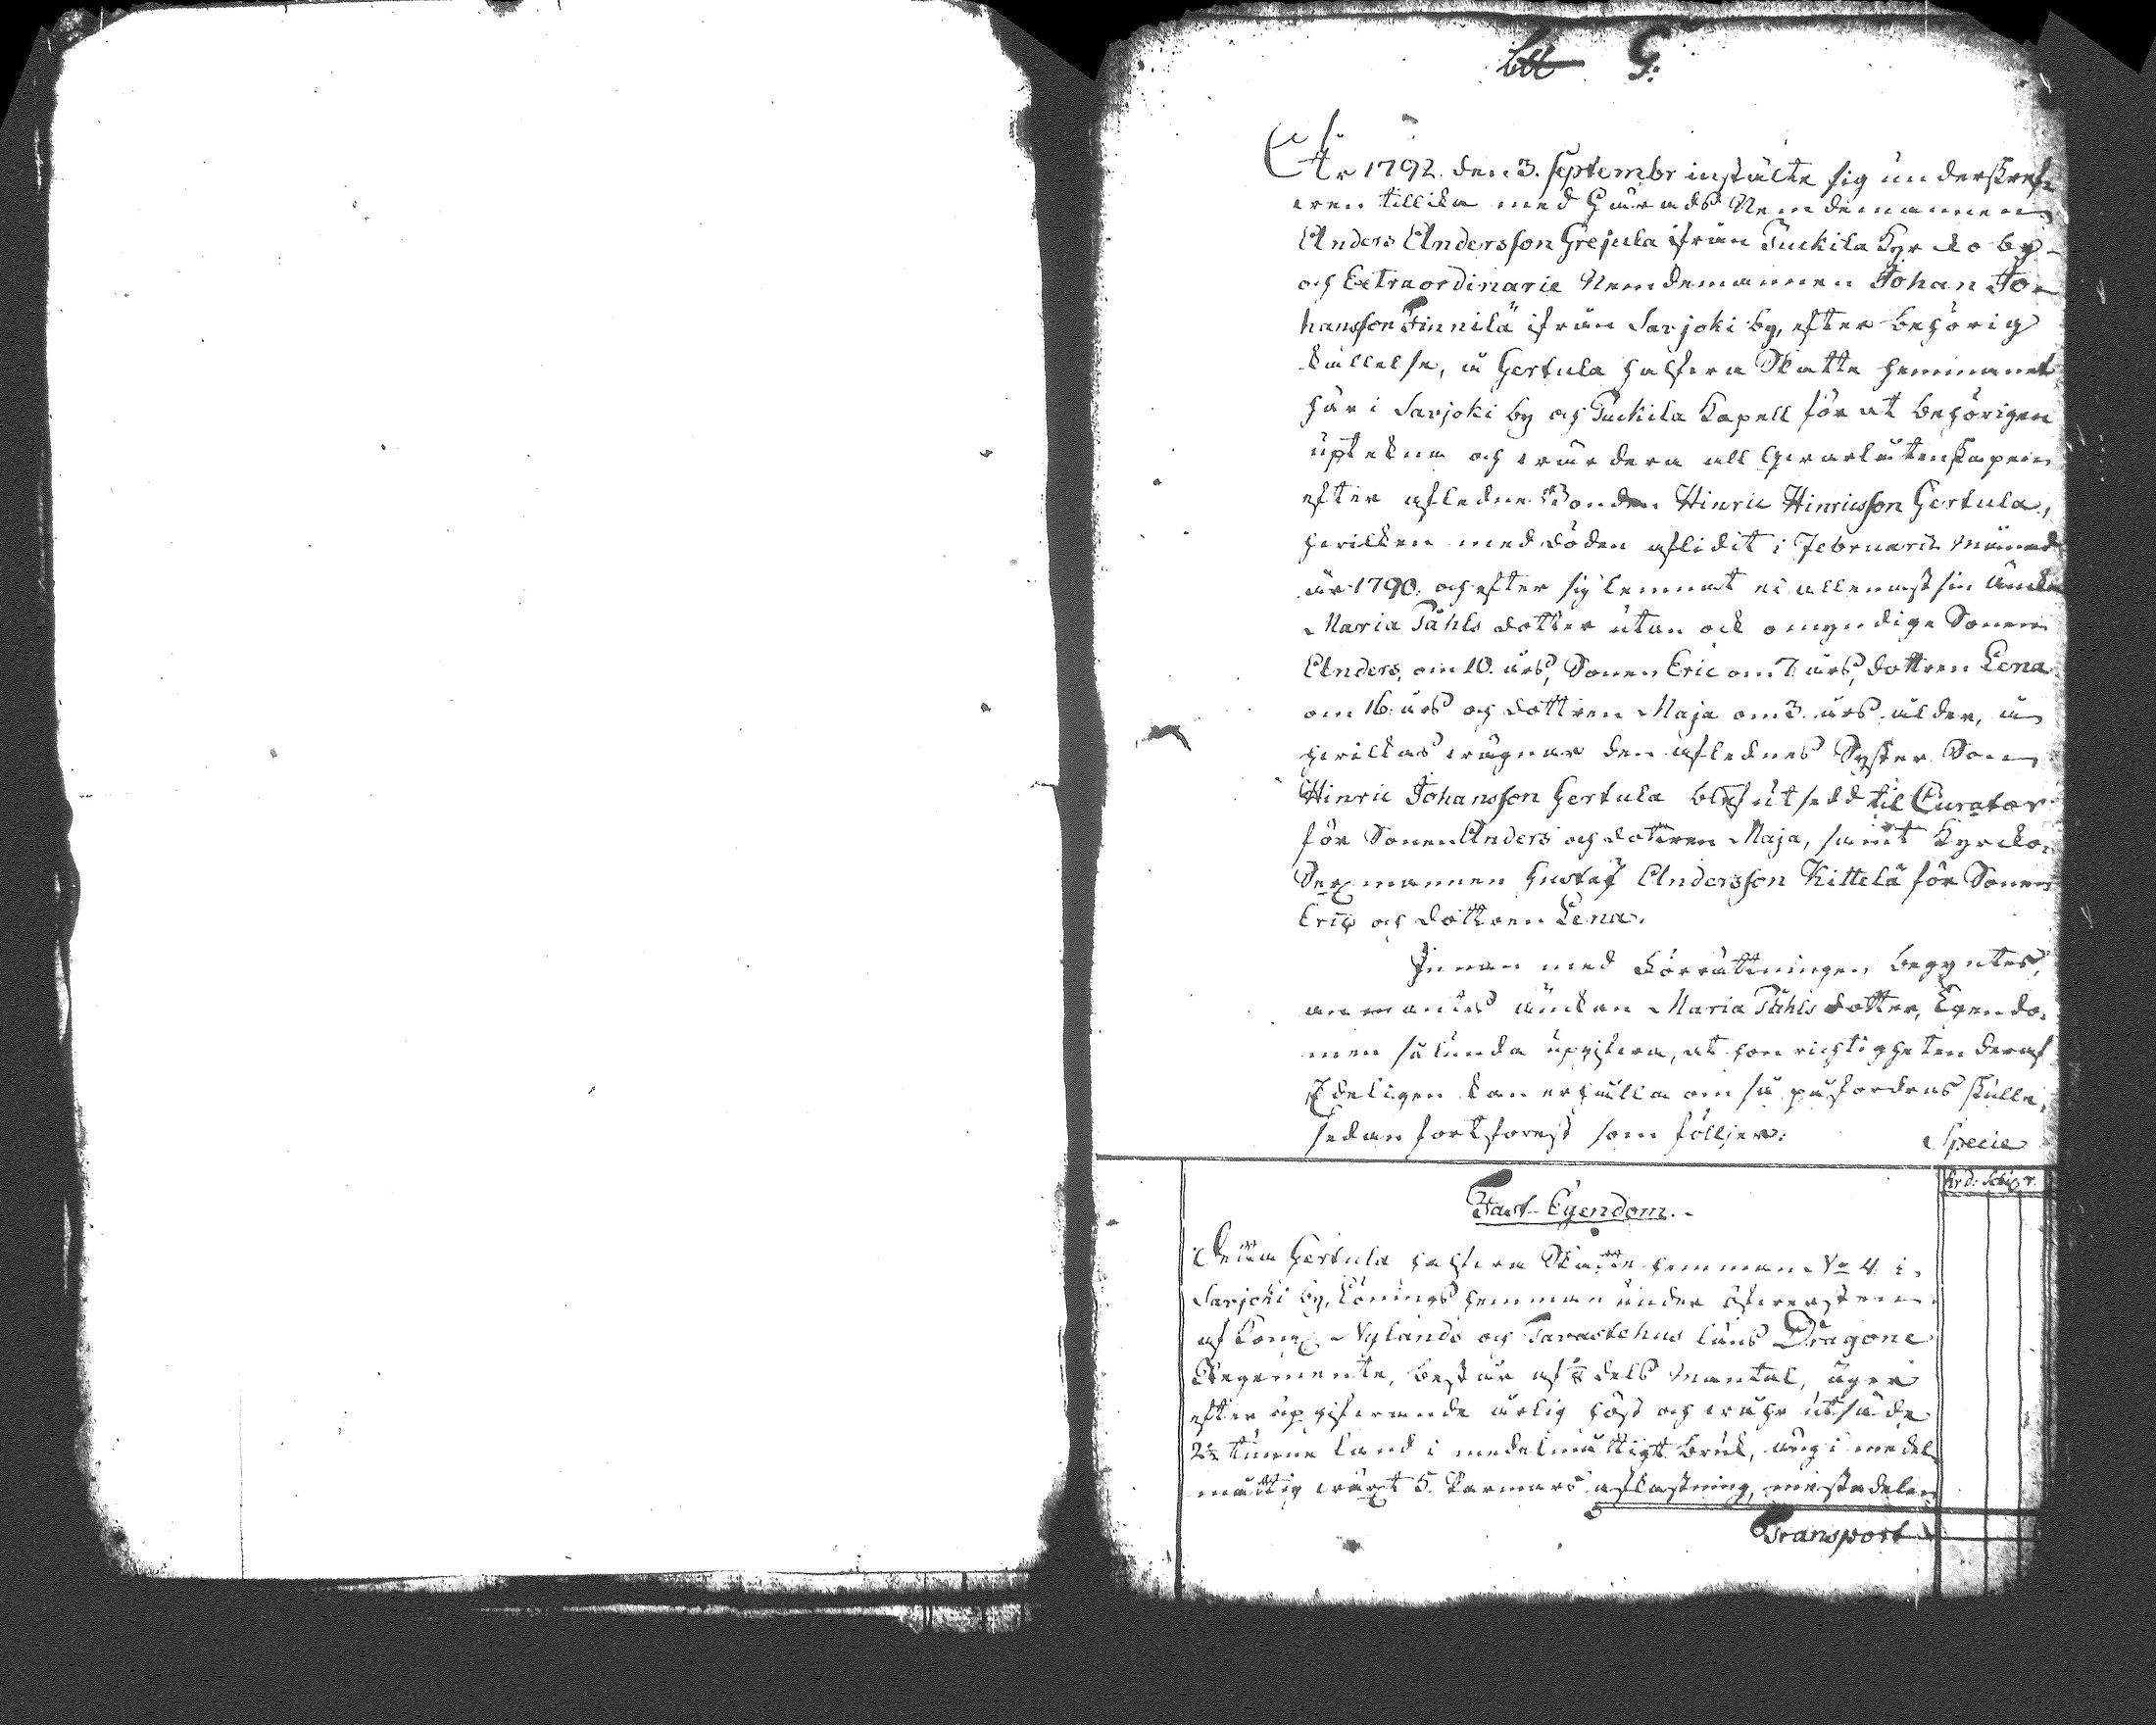 Litt G:
År 1792. den 3. Septembr instälte sig underskref-
wen tillika med Härads Nemdemannen
Anders Andersson Grejula ifrån Tuckila Kyrkoby
och Extraordinarie Nemdemannen Johan Jo-
hansson Finnilä ifrån Sarjoki by, efter behörig
kallelse, å Gertula halfwa Skatte hemmanet
här i Sarjoki by och Tuckila Capell för at behörigen
uptekna och wärdera all Qwarlåtenskapen
efter aflidne Bonden Hinric Hinricsson Gertula,
hwilken med döden aflidit i Februarii Månad
år 1790. och efter sig lemnat ei allenast sin Äncka
Maria Påhls dotter utan ock omyndige Sonen
Anders, om 10. års, Sonen Eric om 7. års, dottren Lena
om 16. års och dottren Maja om 3. års ålder, å
hwilkas wägnar den aflednes Syster Son
Hinric Johansson Gertula blef utsedd til Curator
för Sonen Anders och dottren Maja, samt Kyrcko-
Sexmannen Gustaf Andersson Kittelä för Sonen
Eric och dottren Lena.
Innan med Förrättningen begyntes,
anmantes änckan Maria Påhls dotter, Egendo-
men sålunda upgifwa, at hon richtigheten deraf
Edeligen kan erhålla om så påfordras skulle,
sedan fortfors som följer: Specie
Fast Egendom.
Rd: Sk: r.
Detta Gertula halfwa Skatte hemman No 4 i
Sarjoki by, Lönings hemman under öfwersten
af Kongl. Nylands och Tavastehus läns Dragone
Regemente, består af ½ dels Mantal, äger
efter upgifwande årlig höst och wåhr utsäde
2½ tunne land i medelmåttigt bruk, äng i medel
måttig wäxt 5. Karmars aflastning, mestadelen
Transport